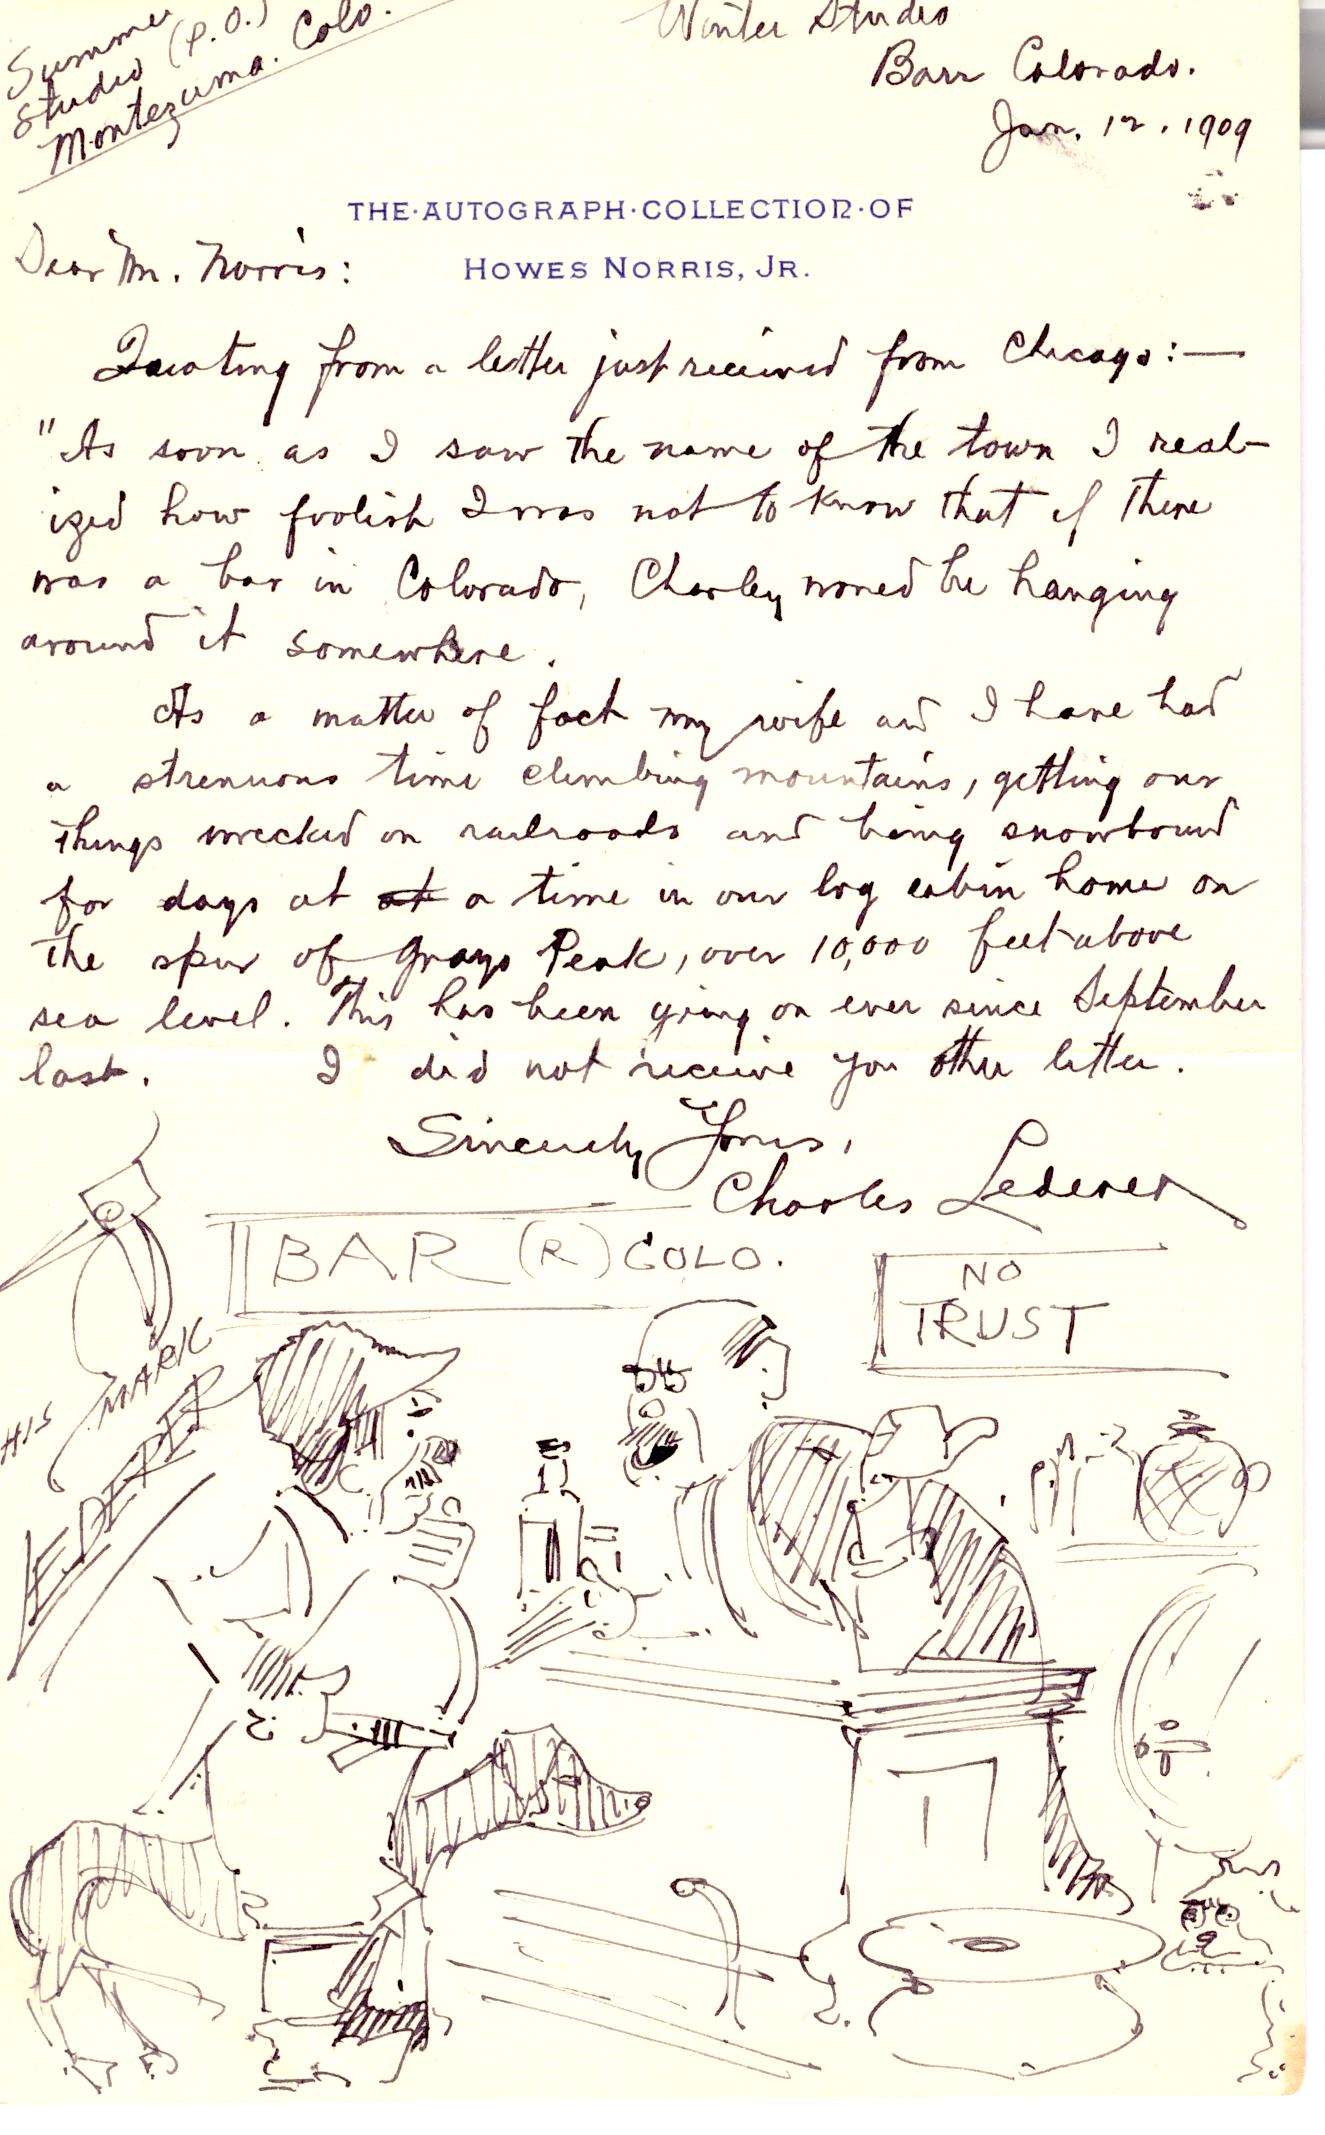 Summer
Studio (P.O.)
Montezuma. Colo.
Winter Studio
Barr Colorado.
Jan. 12. 1909
THE·AUTOGRAPH·COLLECTION·OF
HOWES NORRIS, JR.
Dear Mr. Norris:
Quoting from a letter just received from Chicago:—
"As soon as I saw the name of the town I real-
ized how foolish I was not to know that if there
was a bar in Colorado, Charley would be hanging
around it somewhere.
As a matter of fact my wife and I have had
a strenuous time climbing mountains, getting our
things wrecked on railroads and being snowbound
for days at at a time in our log cabin home on
the spur of Grays Peak, over 10,000 feet above
sea level. This has been going on ever since September
last. I did not receive you other letter.
Sincerely Yours,
Charles Lederer
BAR (R) COLO.
NO
TRUST
HIS MARK
LEDERER